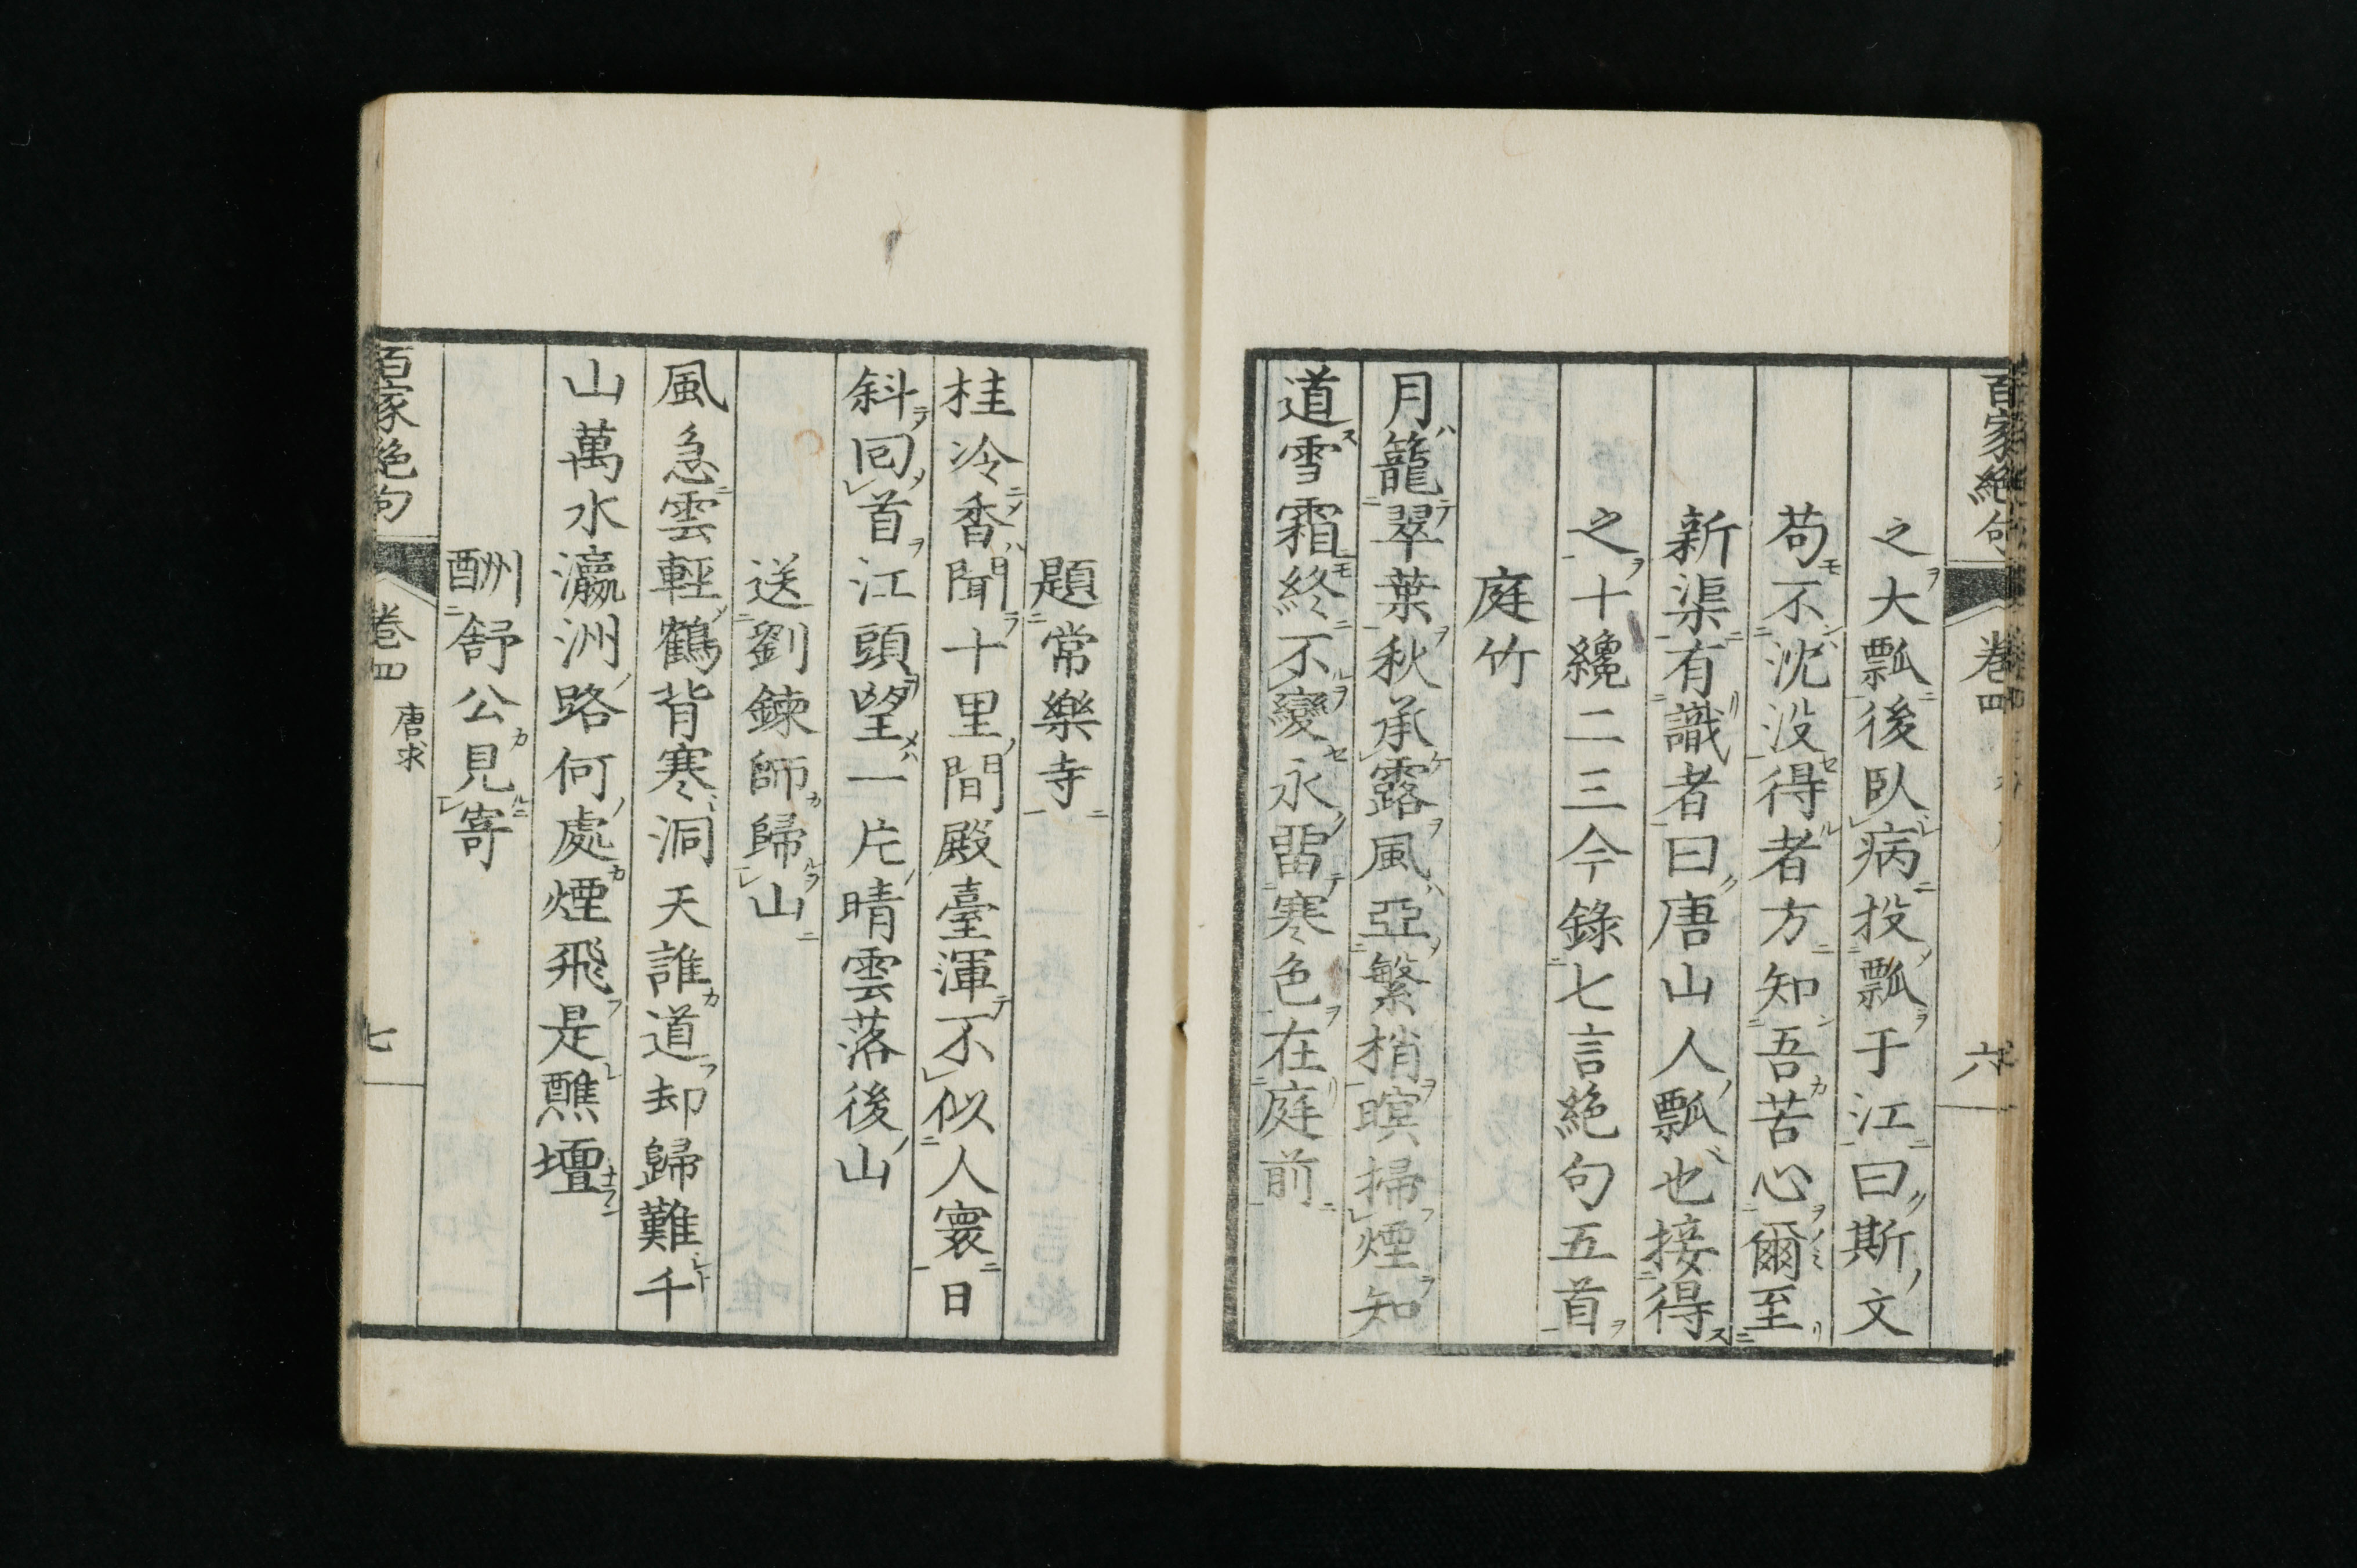 百家絶句 卷四 六
之大瓢後臥病投瓢于江曰斯文
苟不沈没得者方知吾苦心爾至
新渠有識者曰唐山人瓢也接得
之十纔二三今錄七言絶句五首
庭竹
月籠翠葉秋承露風亞繁梢暝掃煙知
道雪霜終不變永畱寒色在庭前
題常樂寺
桂冷香聞十里間殿臺渾不似人寰日
斜囘首江頭望一片晴雲落後山
送劉鍊師歸山
風急雲輕鶴背寒洞天誰道却歸難千
山萬水瀛洲路何處煙飛是醮壇
酬舒公見寄
百家絶句 卷四 唐求 七